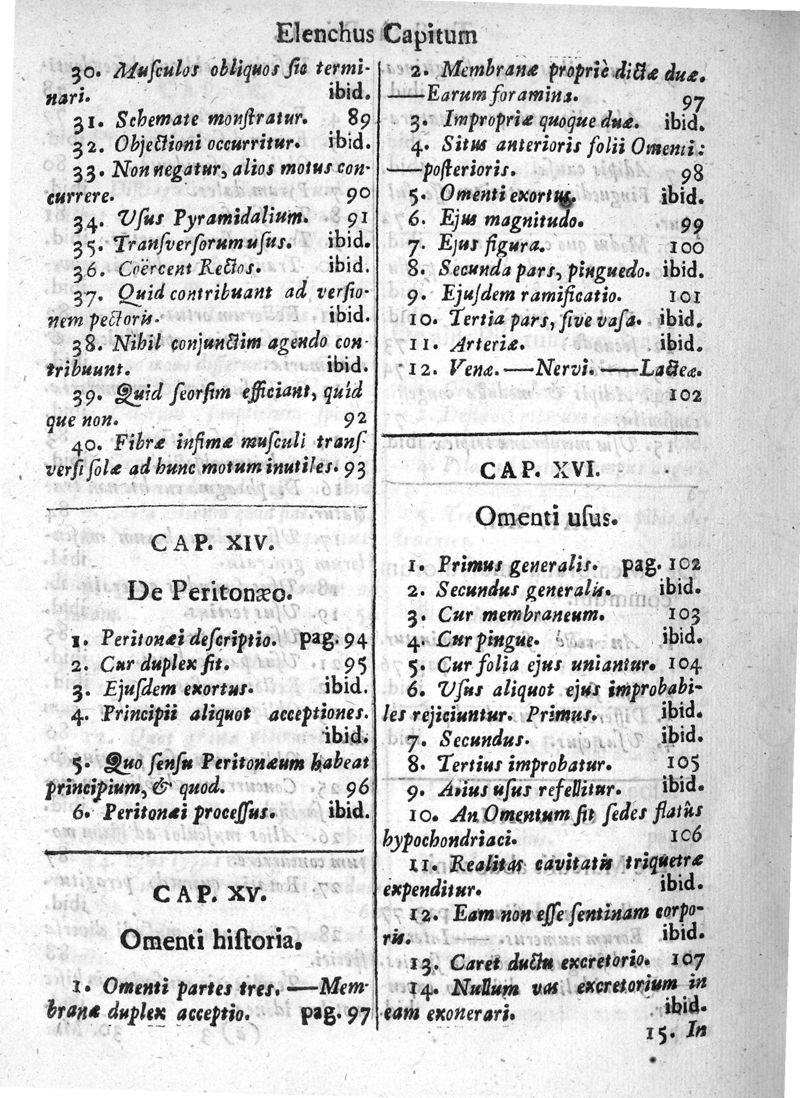 Elenchus Capitum
30. Muſculos obliquos ſic termi-
nari. ibid.
31. Schemate monſtratur. 89
32. Objectioni occurritur. ibid.
33. Non negatur, alios motus con-
currere. 90
34. Uſus Pyramidalium. 91
35. Tranſverſorum uſus. ibid.
36. Coërcent Rectos. ibid.
37. Quid contribuant ad verſio-
nem pectoris. ibid.
38. Nihil conjunctim agendo con-
tribuunt. ibid.
39. Quid ſeorſim efficiant, quid
que non. 92
40. Fibræ infimæ muſculi tranſ
verſi ſolæ ad hunc motum inutiles. 93
CAP. XIV.
De Peritonæo.
1. Peritonæi deſcriptio. pag. 94
2. Cur duplex ſit. 95
3. Ejuſdem exortus. ibid.
4. Principii aliquot acceptiones.
ibid.
5. Quo ſenſu Peritonæum habeat
principium, & quod. 96
6. Peritonæi proceſſus. ibid.
CAP. XV.
Omenti hiſtoria.
1. Omenti partes tres. —Mem-
branæ duplex acceptio. pag. 97
2. Membranæ propriè dictæ duæ.
—Earum foramina. 97
3. Impropriæ quoque duæ. ibid.
4. Situs anterioris folii Omenti:
—poſterioris. 98
5. Omenti exortus. ibid.
6. Ejus magnitudo. 99
7. Ejus figura. 100
8. Secunda pars, pinguedo. ibid.
9. Ejuſdem ramificatio. 101
10. Tertia pars, ſive vaſa. ibid.
11. Arteriæ. ibid.
12. Venæ. —Nervi. —Lacteæ.
102
CAP. XVI.
Omenti uſus.
1. Primus generalis. pag. 102
2. Secundus generalis. ibid.
3. Cur membraneum. 103
4. Cur pingue. ibid.
5. Cur folia ejus uniantur. 104
6. Uſus aliquot ejus improbabi-
les rejiciuntur. Primus. ibid.
7. Secundus. ibid.
8. Tertius improbatur. 105
9. Alius uſus refellitur. ibid.
10. An Omentum ſit ſedes flatûs
hypochondriaci. 106
11. Realitas cavitatis triquetræ
expenditur. ibid.
12. Eam non eſſe ſentinam corpo-
ris. ibid.
13. Caret ductu excretorio. 107
14. Nullum vas excretorium in
eam exonerari. ibid.
15. In